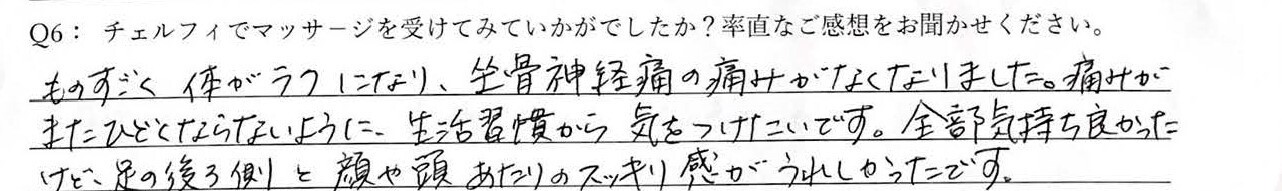 Q6： チェルフィでマッサージを受けてみていかがでしたか？率直なご感想をお聞かせください。
ものすごく 体がラクになり、坐骨神経痛の痛みがなくなりました。痛みが
またひどくならないように、生活習慣から 気をつけたいです。全部気持ち良かった
けど、足の後ろ側と 顔や頭あたりのスッキリ感が うれしかったです。